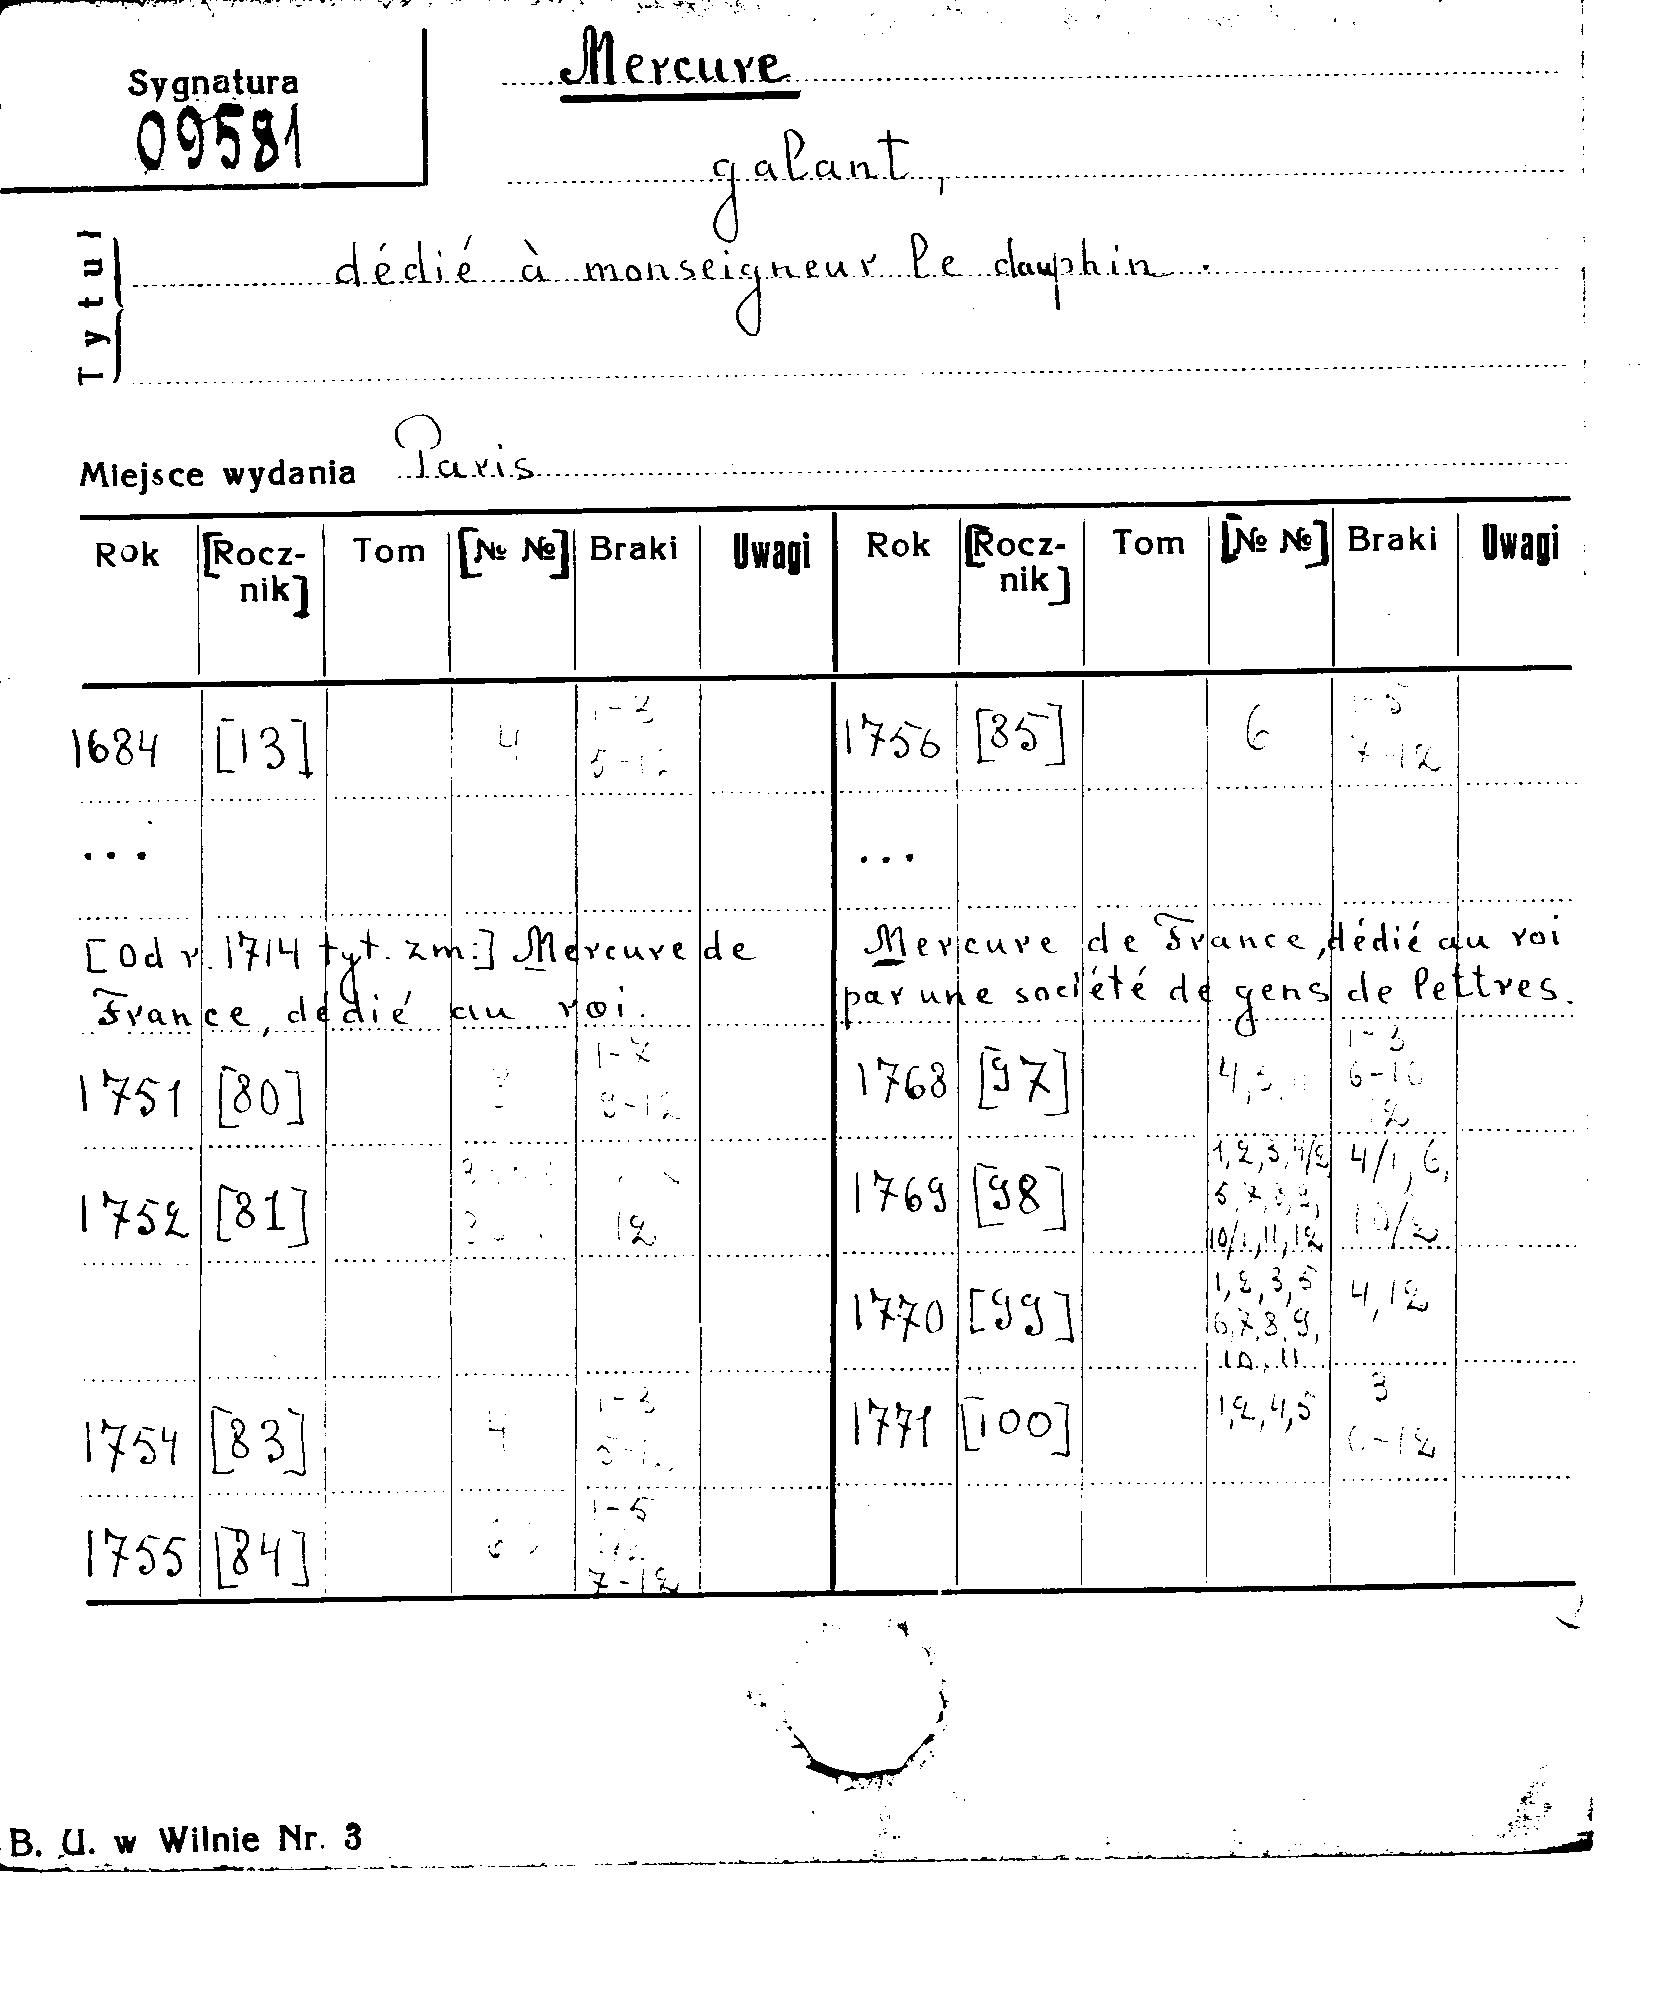 Sygnatura
09581
Mercure
galant,
Tytuł
dédié à monseigneur le dauphin.
Miejsce wydania Paris
Rok [Rocz-nik] Tom [№ №] Braki Uwagi Rok [Rocz-nik] Tom [№ №] Braki Uwagi
1684 [13] 4 1-3
5-12
...
[Od r. 1714 tyt. zm:] Mercure de
France, dédié au roi.
1751 [80] 1-7
12
1752 [81] 12
1754 [83] 4 1-3
1755 [84] 1-5
7-12
1756 [85] 6 1-5
7-12
...
Mercure de France, dédié au roi
par une société de gens de lettres.
1768 [97] 4, 1-3
6-10
12
1769 [98] 1,2,3,4/2 4/1, 6,
5,7,8,9, 10/2
10/1,11,12
1770 [99] 1,2,3,5 4,12
6,7,8,9,
10,11
1771 [100] 1,2,4,5 3
6-12
B. U. w Wilnie Nr. 3